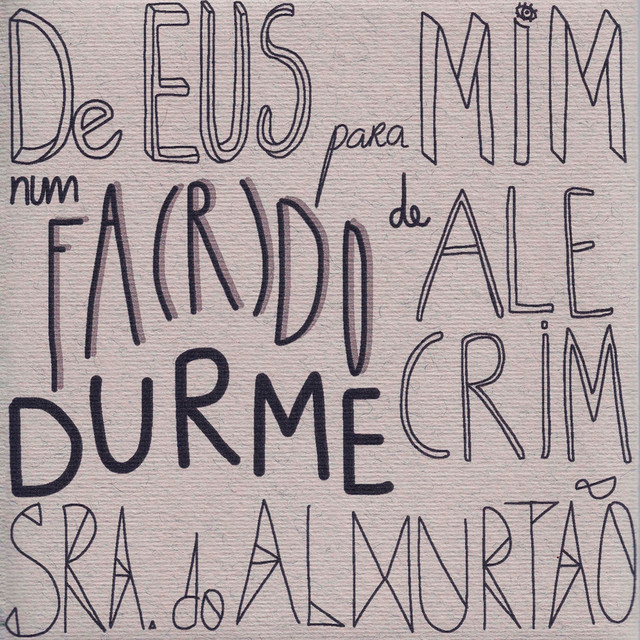 De EUS para MIM
num FA(R)DO de ALE
CRIM
DURME
SRA. do ALMURTÃO